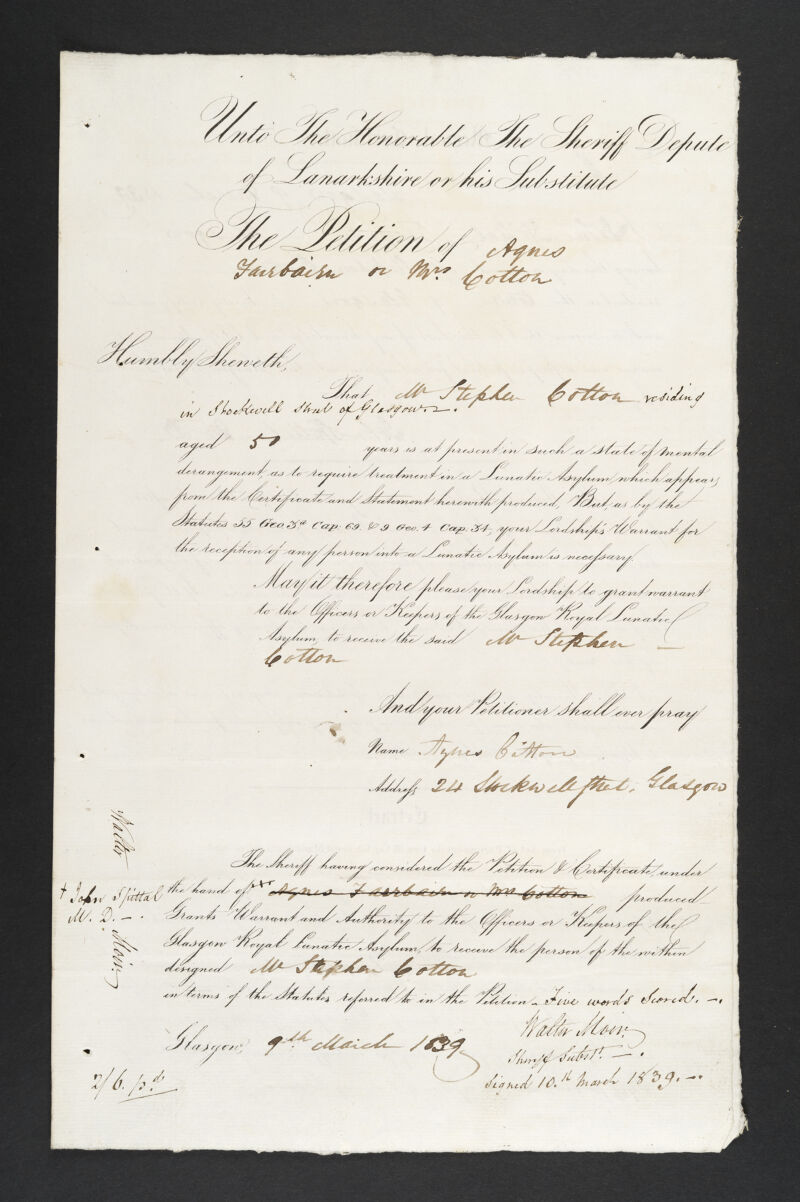 Unto The Honorable The Sheriff Depute
of Lanarkshire or his Substitute
The Petition of Agnes
Fairbairn or Mrs Cotton
Humbly Sheweth,
That Mr Stephen Cotton residing
in Stockwell Street of Glasgow
aged 50 years is at present in such a state of mental
derangement, as to require treatment in a Lunatic Asylum, which appears
from the Certificate and Statement herewith produced, But, as by the
Statutes 55 Geo 3d Cap. 69. & 9 Geo. 4 Cap. 34, your Lordship's Warrant for
the reception of any person into a Lunatic Asylum is necessary.
May it therefore please your Lordship to grant warrant
to the Officers or Keepers of the Glasgow Royal Lunatic
Asylum, to receive the said Mr Stephen
Cotton
And your Petitioner shall ever pray
Name Agnes Cotton
Address 24 Stockwell Street, Glasgow
The Sheriff having considered the Petition & Certificate under
the hand of + Agnes Fairbairn or Mrs Cotton produced
+ John Spittal
M. D. -.
Walter Moir
Grants Warrant and Authority to the Officers or Keepers of the
Glasgow Royal Lunatic Asylum, to receive the person of the within
designed Mr Stephen Cotton
in terms of the Statutes referred to in the Petition - Five words scored. -.
Walter Moir
Sheriff Substt. -.
Glasgow, 9th March 1839
Signed 10.th March 1839. -.
2/6. pd